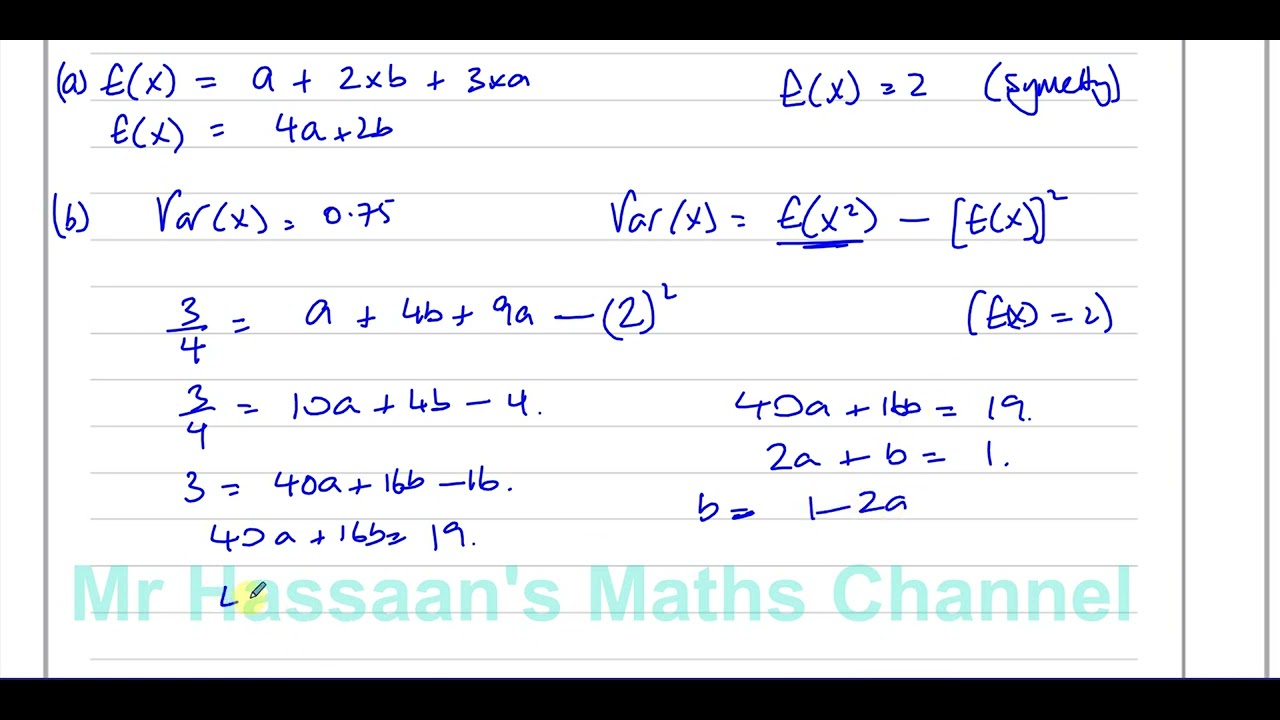 (a) E(X) = a + 2xb + 3xa E(X) = 2 (Symetty)
E(X) = 4a+2b
(b) Var(X) = 0.75 Var(X) = E(X²) — [E(X)]²
3/4 = a + 4b + 9a — (2)² (E(X) = 2)
3/4 = 10a + 4b — 4. 40a + 16b = 19.
2a + b = 1.
3 = 40a + 16b — 16. b = 1 — 2a
40a + 16b = 19.
4
Mr Hassaan's Maths Channel